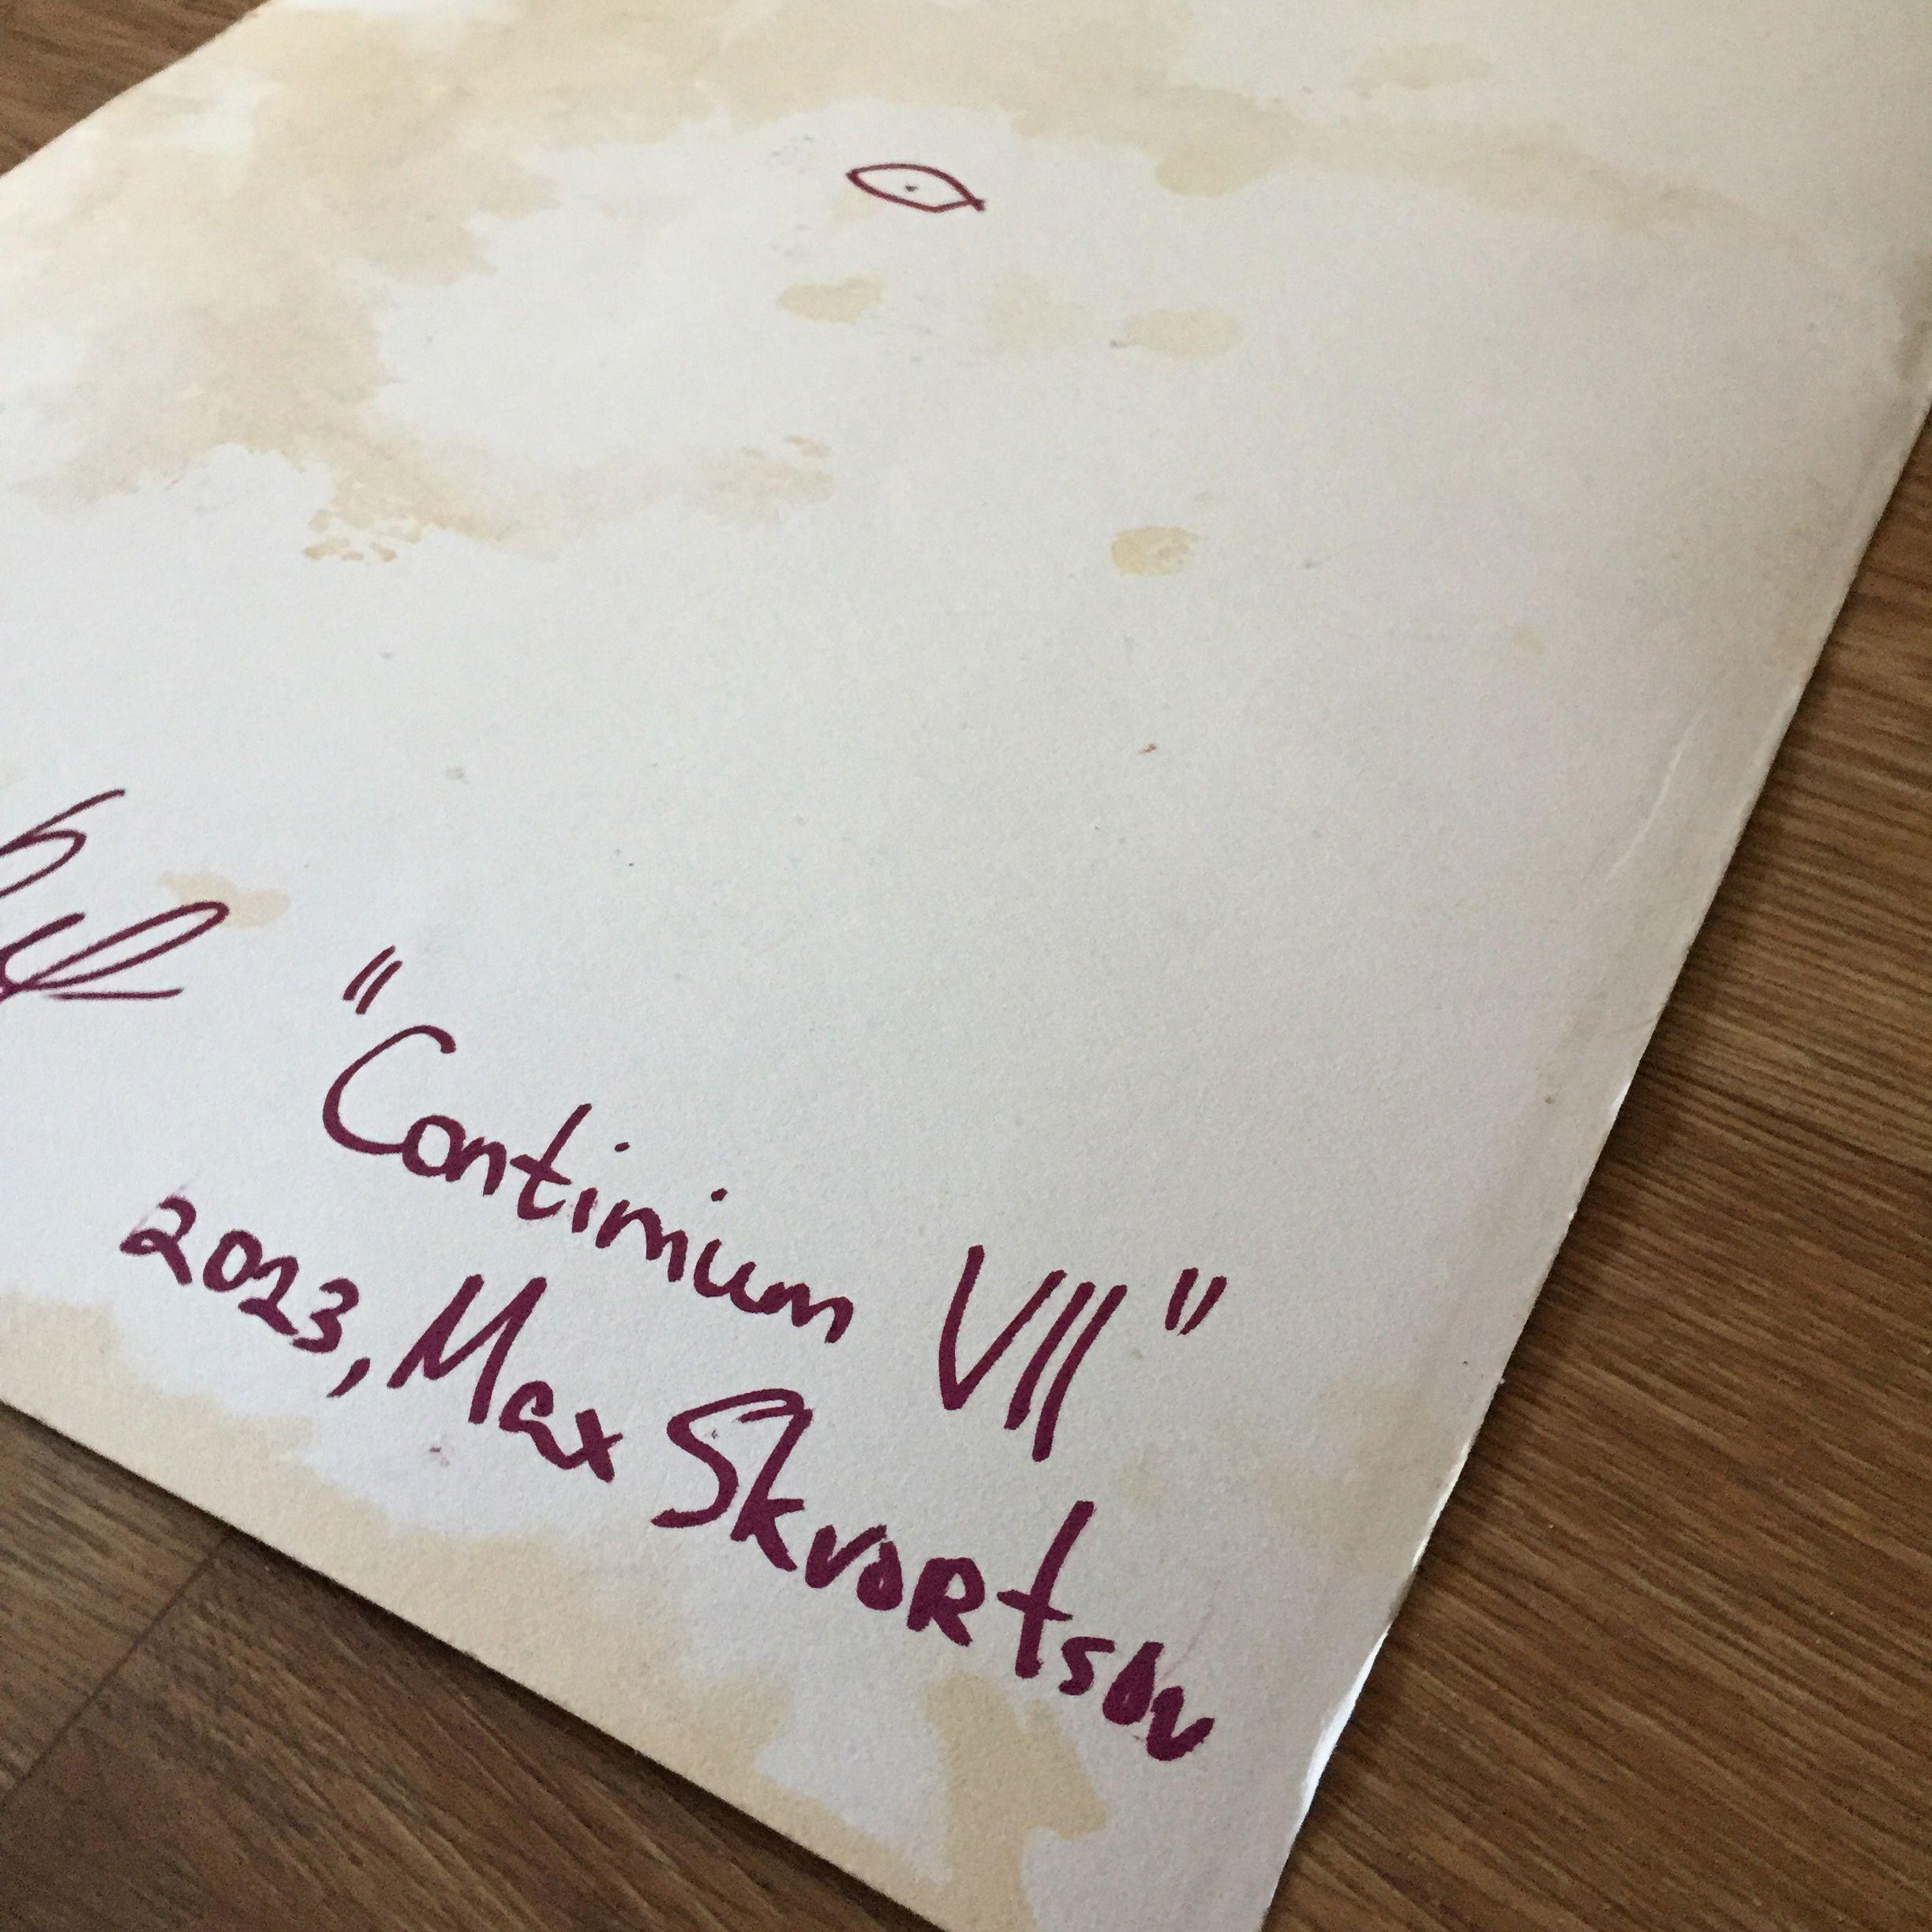 "Continium VII"
2023, Max Skvortsov